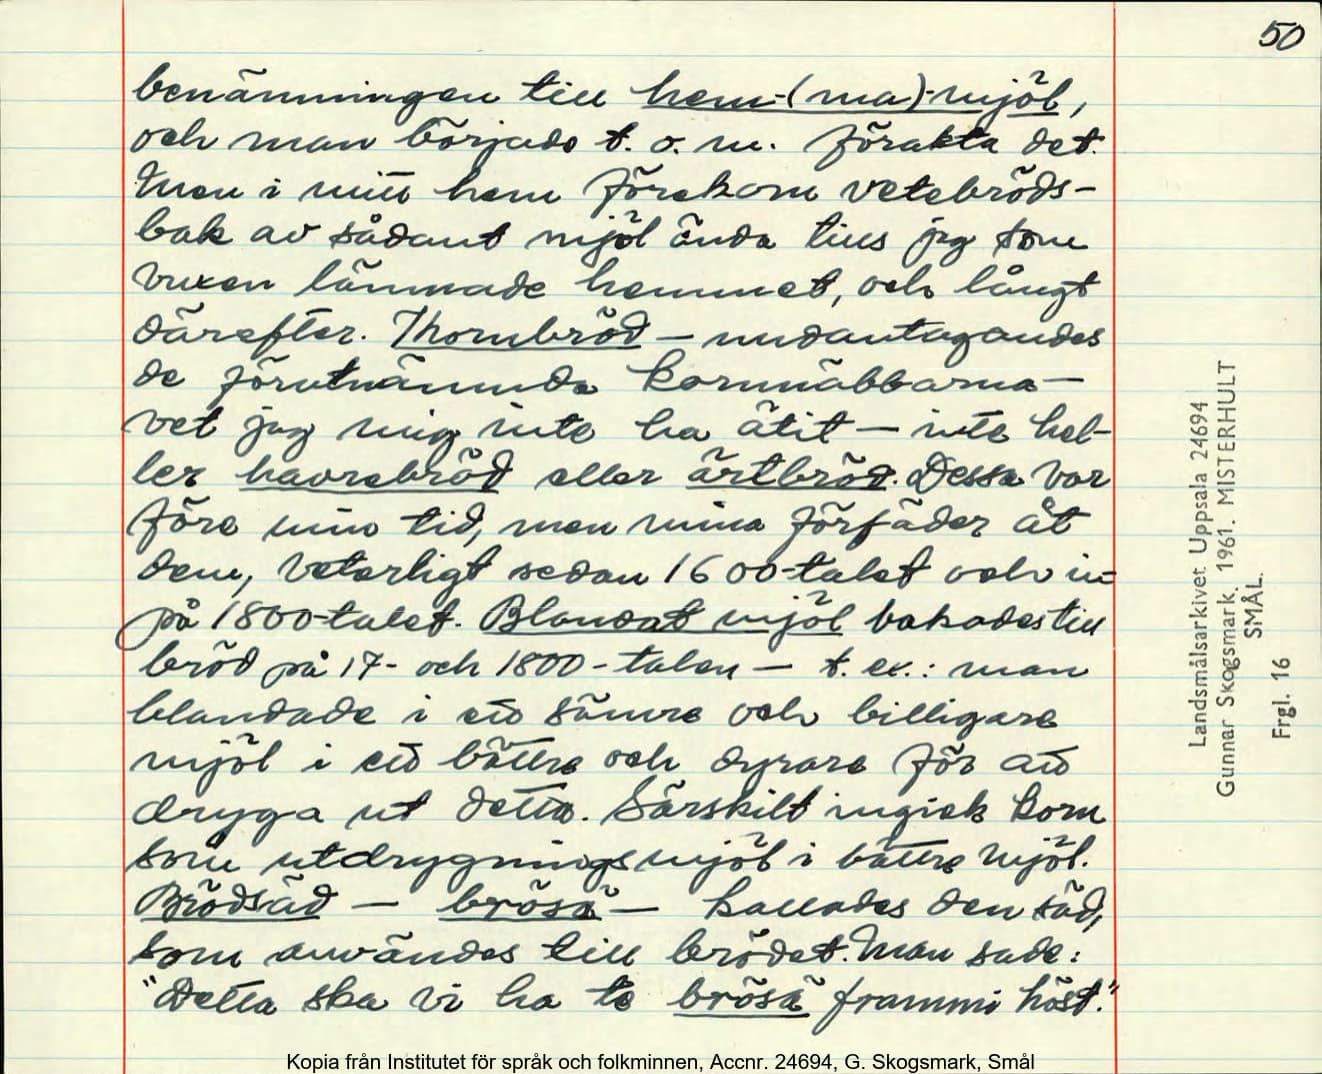 50
benämningen till hem-(ma)-mjöl,
och man började t. o. m. förakta det.
Men i mitt hem förekom vetebröds-
bak av sådant mjöl ända tills jag som
vuxen lämnade hemmet, och långt
därefter. Kornbröd – undantagandes
de förutnämnda kornnabbarna –
vet jag mig inte ha ätit – inte hel-
ler havrebröd eller ärtbröd. Dessa var
före min tid, men mina förfäder åt
dem, veterligt sedan 1600-talet och in-
på 1800-talet. Blandat mjöl bakades till
bröd på 17- och 1800-talen – t. ex.: man
blandade i ett sämre och billigare
mjöl i ett bättre och dyrare för att
dryga ut detta. Särskilt ingick korn
som utdrygningsmjöl i bättre mjöl.
Brödsäd – brösä – kallades den säd,
som användes till brödet. Man sade:
"Detta ska vi ha te brösä frammi höst."
Landsmålsarkivet Uppsala 24694
Gunnar Skogsmark, 1961. MISTERHULT
SMÅL.
Frgl. 16
Kopia från Institutet för språk och folkminnen, Accnr. 24694, G. Skogsmark, Smål